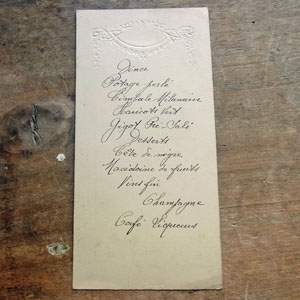 Dîner
Potage perlé
Timbale Milanaise
Haricots Vert
Gigot Pré-Salé
Desserts
Tête de nègre
Macédoine de fruits
Vins fin
Champagne
Café Liqueurs